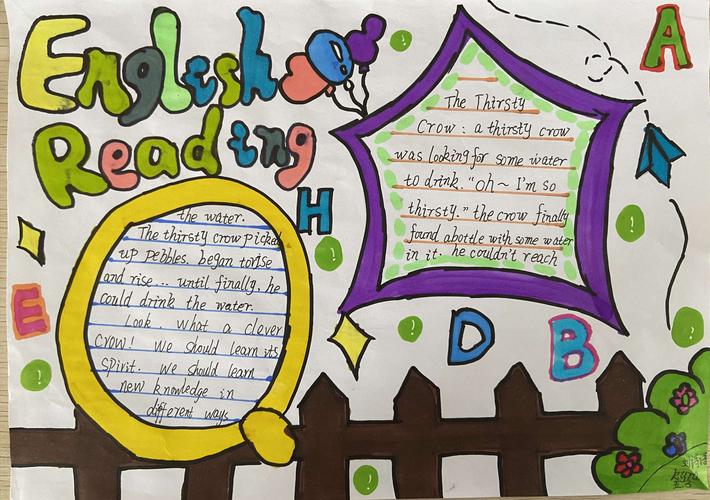 English
Reading
A
The Thirsty
Crow: a thirsty crow
was looking for some water
to drink. "oh~ I'm so
thirsty." the crow finally
found abottle with some water
in it. he couldn't reach
the water.
The thirsty crow picked
up pebbles. began torise
and rise... until finally. he
could drink the water.
Look. what a clever
crow! we should learn its
spirit. we should learn
new knowledge in
different ways
H
E
D
B
!
!
!
!
!
!
!